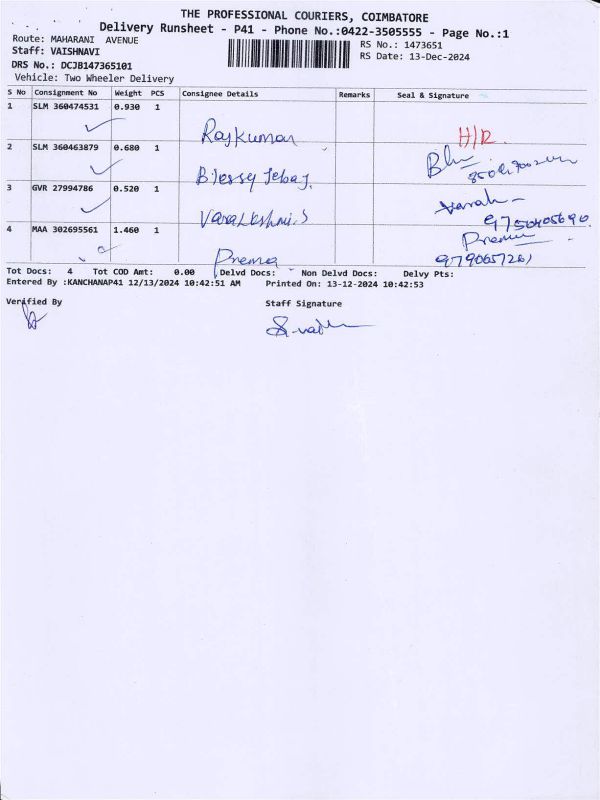 THE PROFESSIONAL COURIERS, COIMBATORE
Delivery Runsheet - P41 - Phone No.:0422-3505555 - Page No.:1
Route: MAHARANI AVENUE
RS No.: 1473651
Staff: VAISHNAVI
RS Date: 13-Dec-2024
DRS No.: DCJB147365101
Vehicle: Two Wheeler Delivery
S No Consignment No Weight PCS Consignee Details Remarks Seal & Signature
1 SLM 360474531 0.930 1
Rajkumar H/R
2 SLM 360463879 0.680 1
Blessy Jebaj.
3 GVR 27994786 0.520 1
Varalakshmi.S
9750405690
4 MAA 302695561 1.460 1
Prema
Prema
9790657261
Tot Docs: 4 Tot COD Amt: 0.00 Delvd Docs: Non Delvd Docs: Delvy Pts:
Entered By :KANCHANAP41 12/13/2024 10:42:51 AM Printed On: 13-12-2024 10:42:53
Verified By Staff Signature